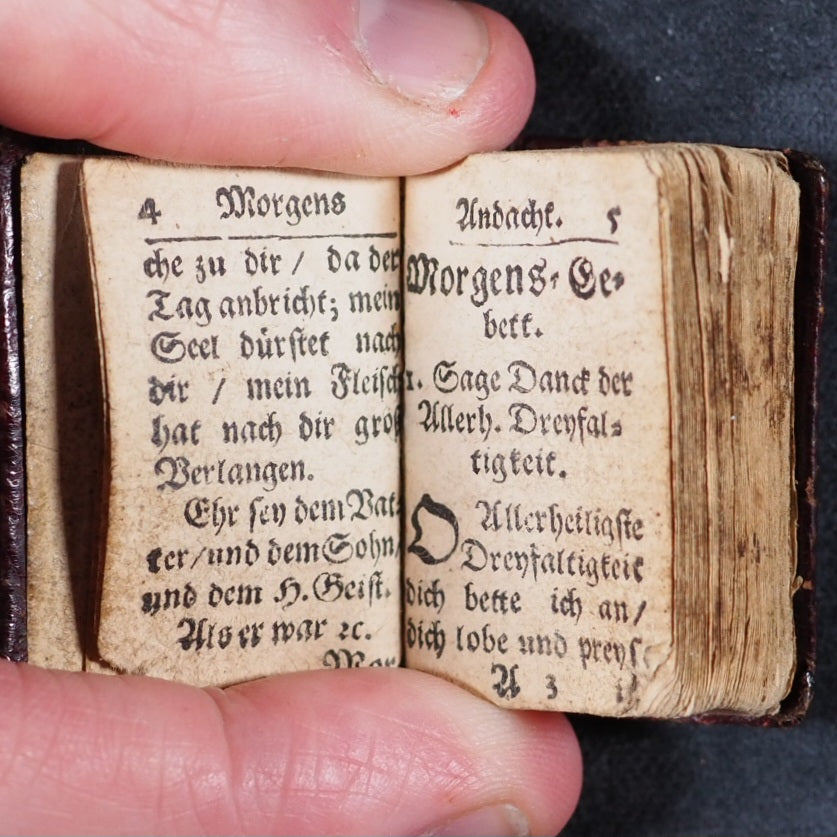 4 Morgens
che zu dir / da der
Tag anbricht; mein
Seel dürstet nach
dir / mein Fleisch
hat nach dir groß
Verlangen.
Ehr sey dem Vat-
ter/und dem Sohn/
und dem H. Geist.
Als er war ꝛc.
Mor
Andacht. 5
Morgens-Ge-
bett.
1. Sage Danck der
Allerh. Dreyfal-
tigkeit.
O Allerheiligste
Dreyfaltigkeit
dich bette ich an/
dich lobe und preyse
A 3